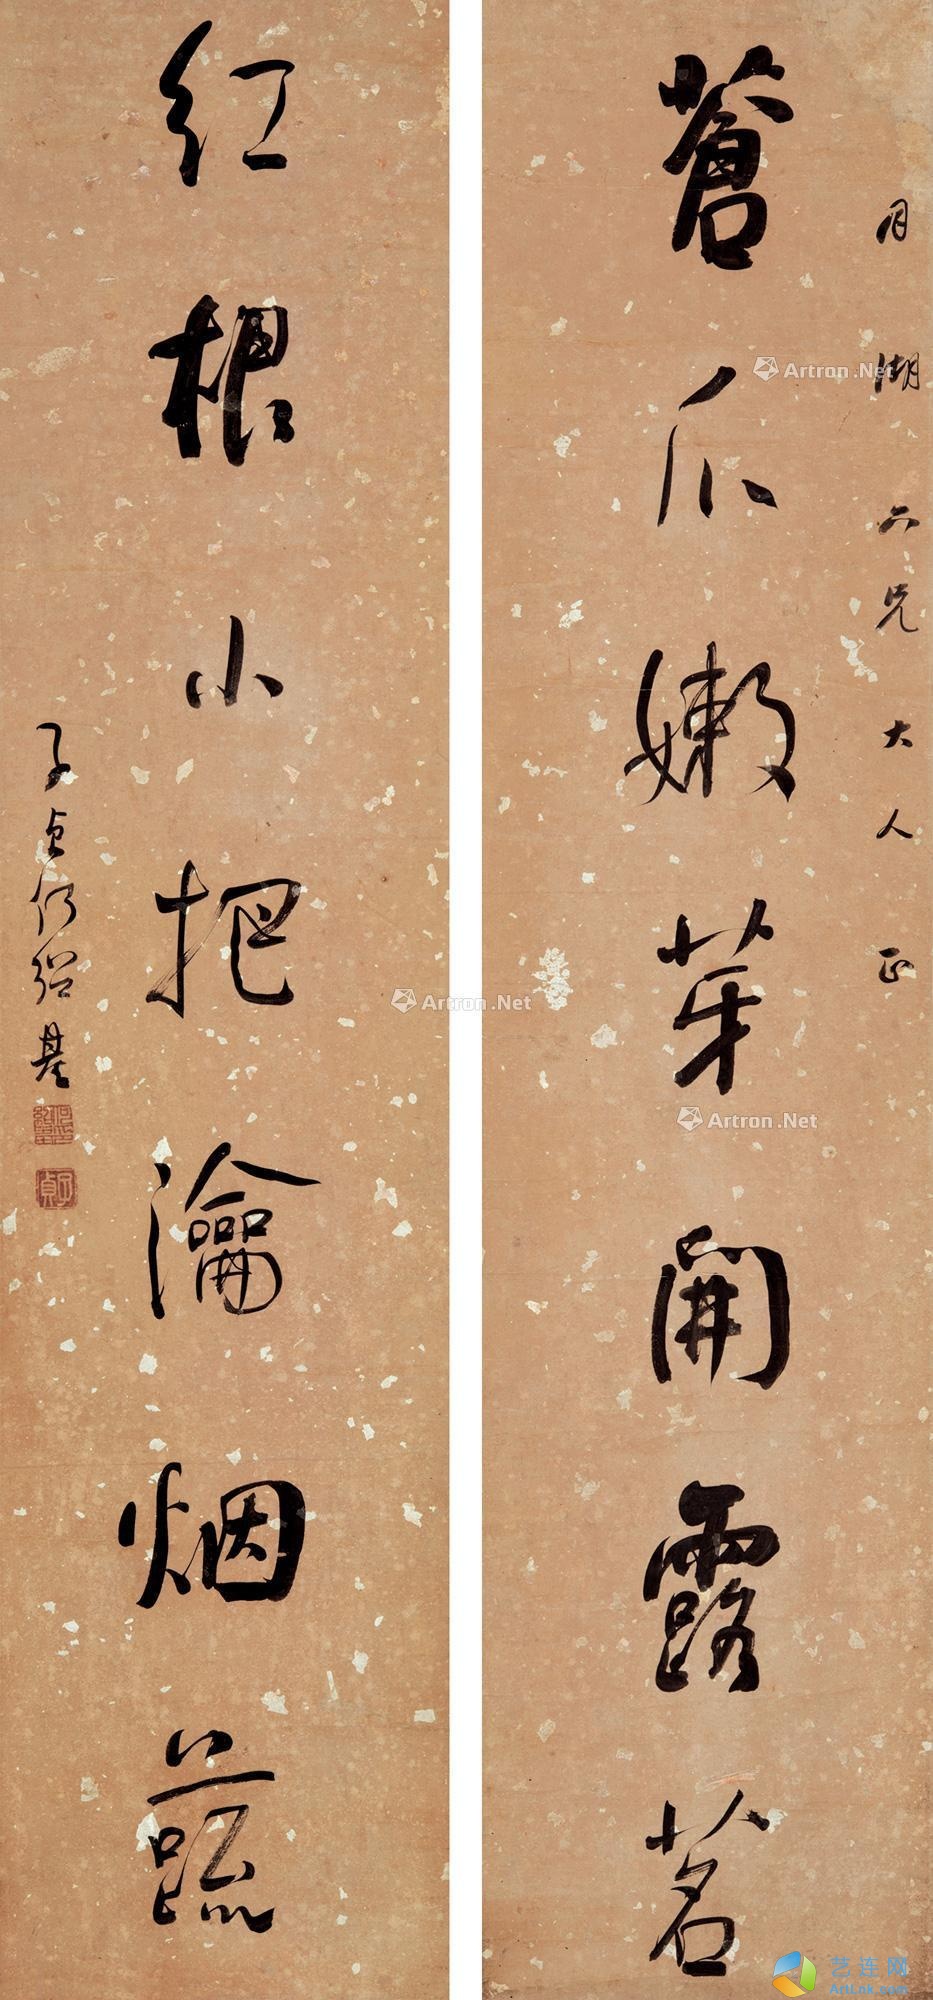 月湖六兄大人正
蒼爪嫩芽開露茗
紅根小把瀹烟蔬
子貞何紹基
何紹基印
子貞
Artron.Net
Artron.Net
Artron.Net
艺连网
ArtLok.com